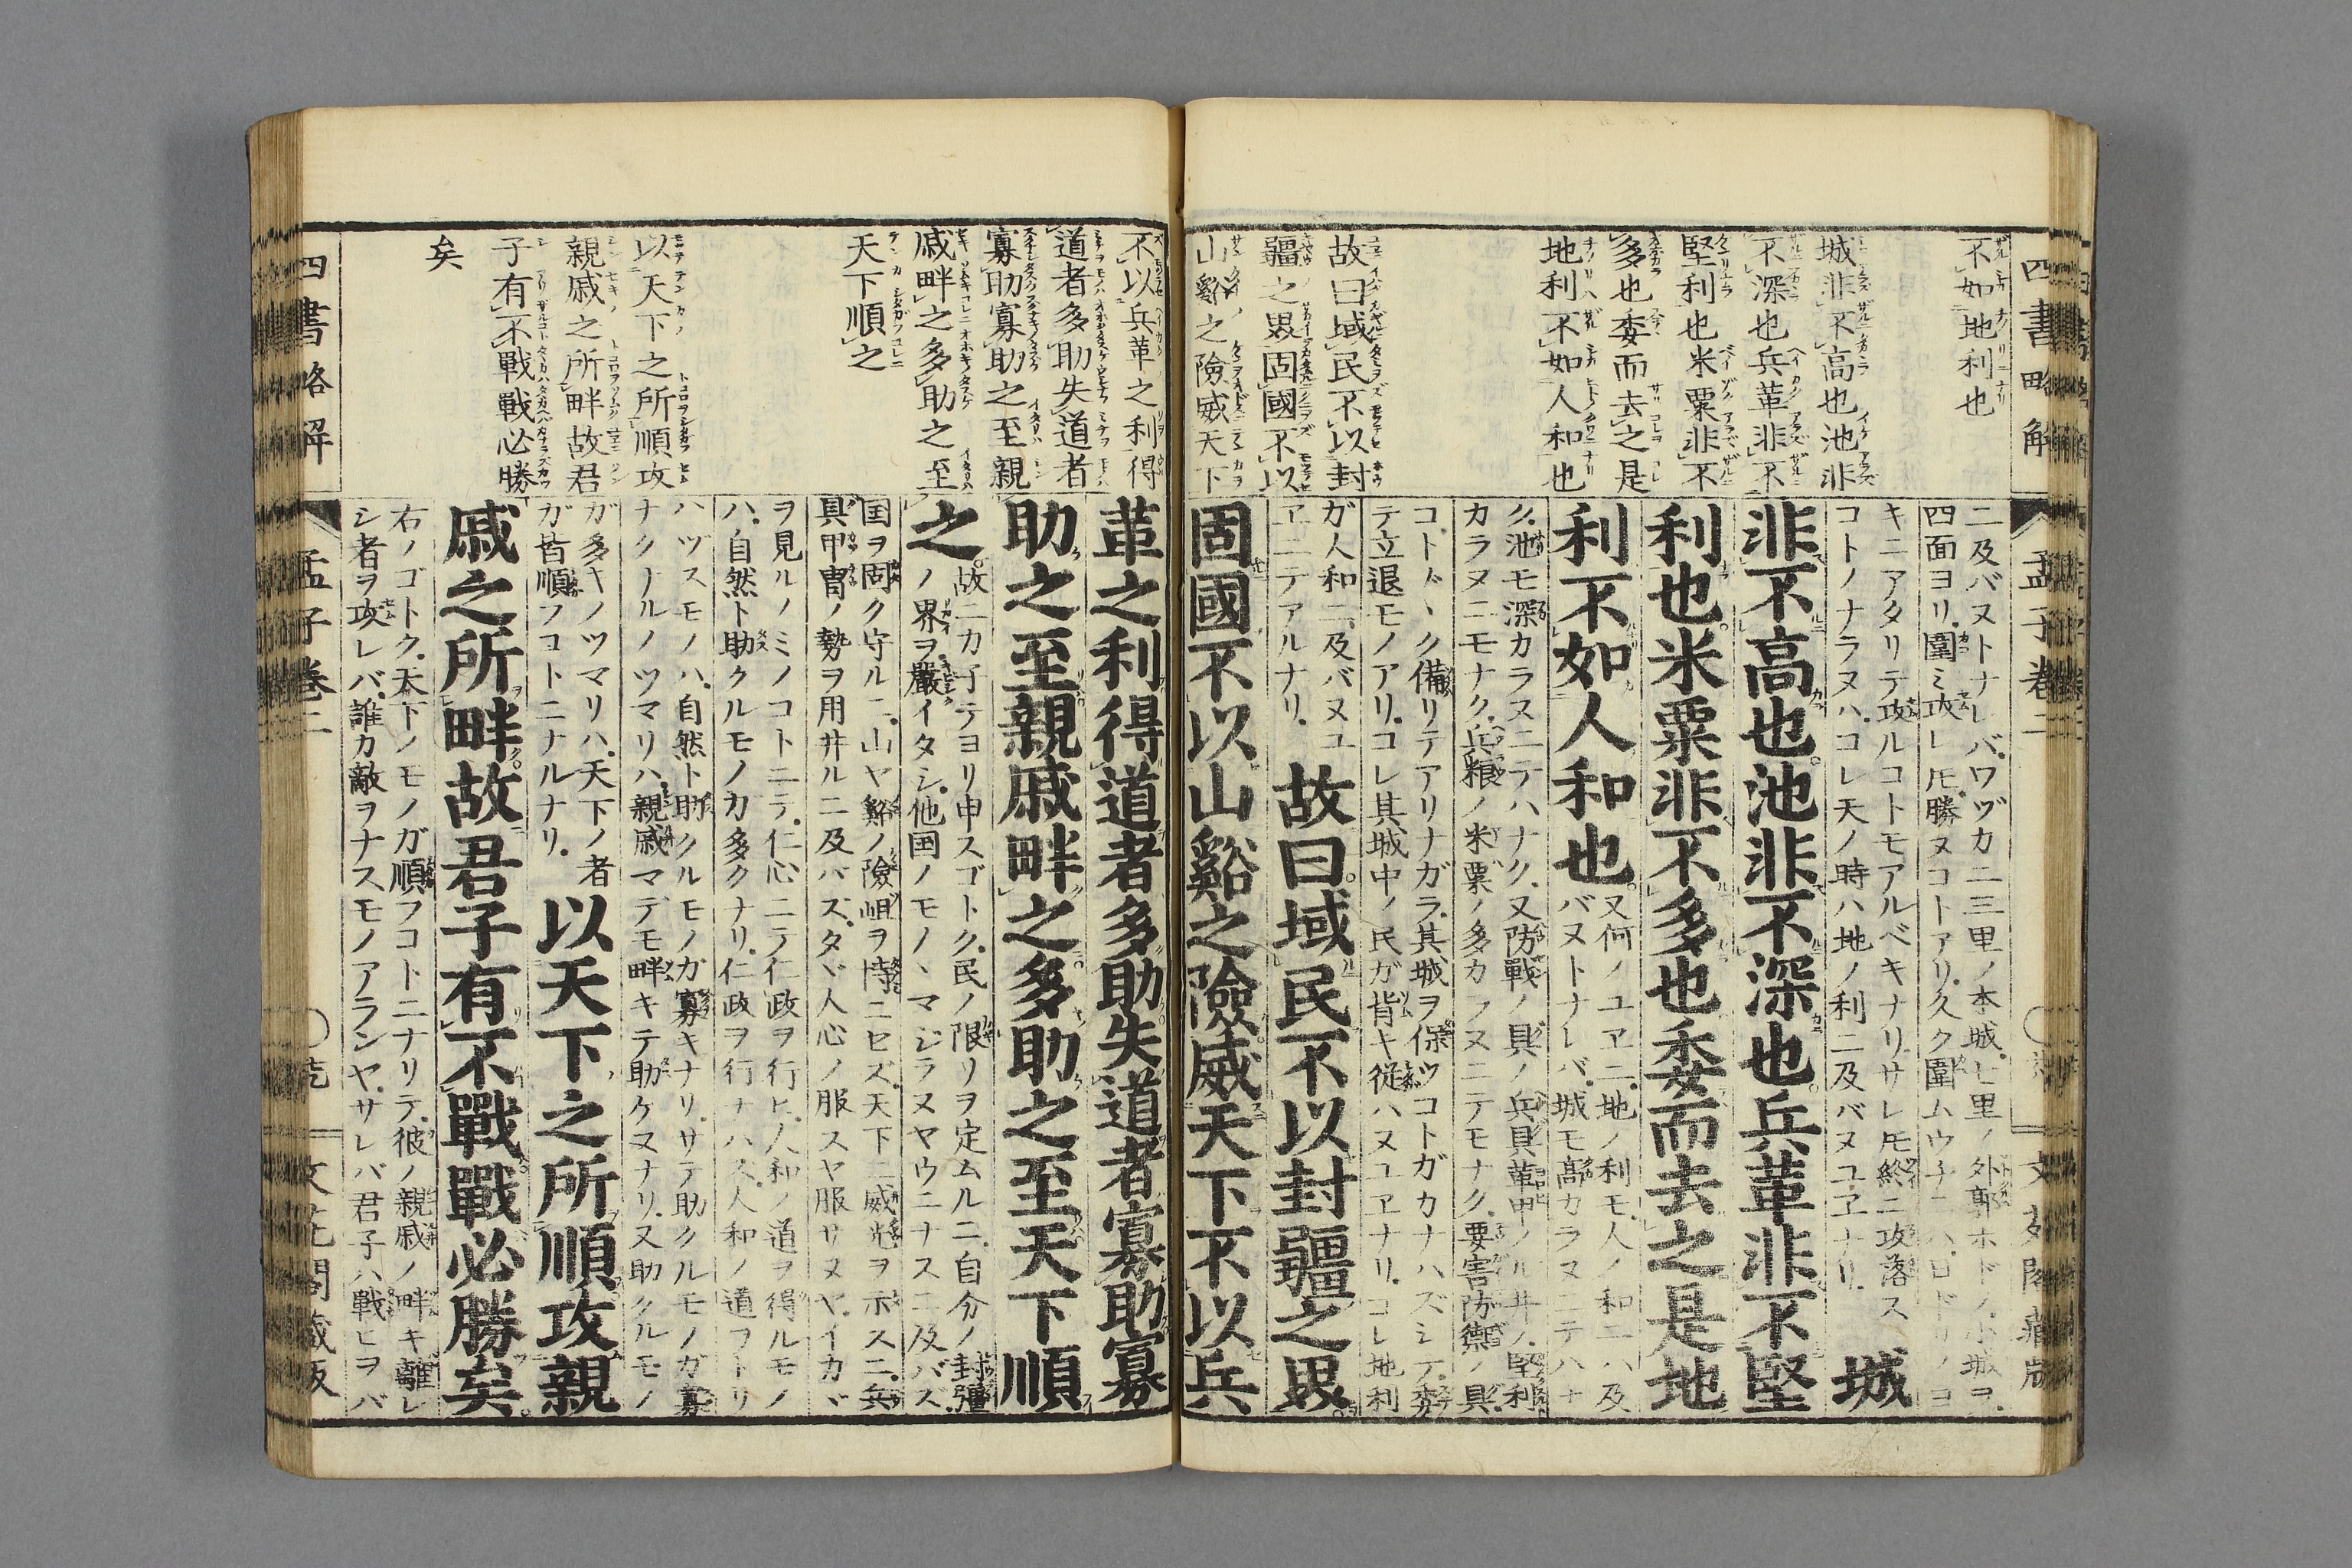 四書略解 孟子卷二
不如地利也
城非不高也池非
不深也兵革非不
堅利也米粟非不
多也委而去之是
地利不如人和也
故曰域民不以封
疆之畍固國不以
山谿之險威天下
ニ及バヌトナレバ、ワヅカ二三里ノ本城、七里ノ外郭ホドノ小城ヲ、
四面ヨリ、圍ミ攻レ𪜈勝ヌコトアリ、久ク圍ムウチニハ、日ドリノヨ
キニアタリテ攻ルコトモアルベキナリ、サレ𪜈終ニ攻落ス
コトノナラヌハ、コレ天ノ時ハ地ノ利ニ及バヌユヱナリ、
城
非不高也。池非不深也。兵革非不堅
利也。米粟非不多也。委而去之。是地
利不如人和也。
又何ノユヱニ、地ノ利モ、人ノ和ニハ及
バヌトナレバ、城モ高カラヌニテハナ
ク、池モ深カラヌニテハナク、又防戰ノ具ノ兵具革甲ノルヰノ、堅利
カラヌニモナク、兵粮ノ米粟ノ多カラヌニテモナク、要害防禦ノ具、
コト〴〵ク備リテアリナガラ、其城ヲ保ツコトガカナハズシテ、委
テ立退モノアリ、コレ其城中ノ民ガ背キ従ハヌユヱナリ、コレ地利
ガ人和ニ及バヌユ
ヱニテアルナリ、
故曰。域民不以封疆之畍。
固國不以山谿之險。威天下不以兵
不以兵革之利得
道者多助失道者
寡助寡助之至親
戚畔之多助之至
天下順之
以天下之所順攻
親戚之所畔故君
子有不戰戰必勝
矣
革之利。得道者多助。失道者寡助。寡
助之至。親戚畔之。多助之至。天下順
之。
故ニカ子テヨリ申スゴトク、民ノ限リヲ定ムルニ、自分ノ封疆
ノ界ヲ、嚴イタシ、他国ノモノヽマジラヌヤウニナスニ及バズ、
国ヲ固ク守ルニ、山ヤ谿ノ險岨ヲ恃ニセズ、天下ニ威光ヲ示スニ、兵
具甲冑ノ勢ヲ用井ルニ及バズ、タヾ人心ノ服スヤ服サヌヤ、イカヾ
ヲ見ルノミノコトニテ、仁心ニテ仁政ヲ行ヒ、人和ノ道ヲ得ルモノ
ハ、自然ト助クルモノカ多クナリ、仁政ヲ行ナハズ、人和ノ道ヲトリ
ハヅスモノハ、自然ト助クルモノガ寡キナリ、サテ助クルモノガ寡
ナクナルノツマリハ、親戚マデモ畔キテ助ケヌナリ、又助クルモノ
ガ多キノツマリハ、天下ノ者
ガ皆順フコトニナルナリ、
以天下之所順。攻親
戚之所畔。故君子有不戰。戰必勝矣。
右ノゴトク、天下ノモノガ順フコトニナリテ、彼ノ親戚ノ畔キ離レ
シ者ヲ攻レバ、誰カ敵ヲナスモノアランヤ、サレバ君子ハ戰ヒヲバ
四書略解 孟子卷二 文花閣藏版